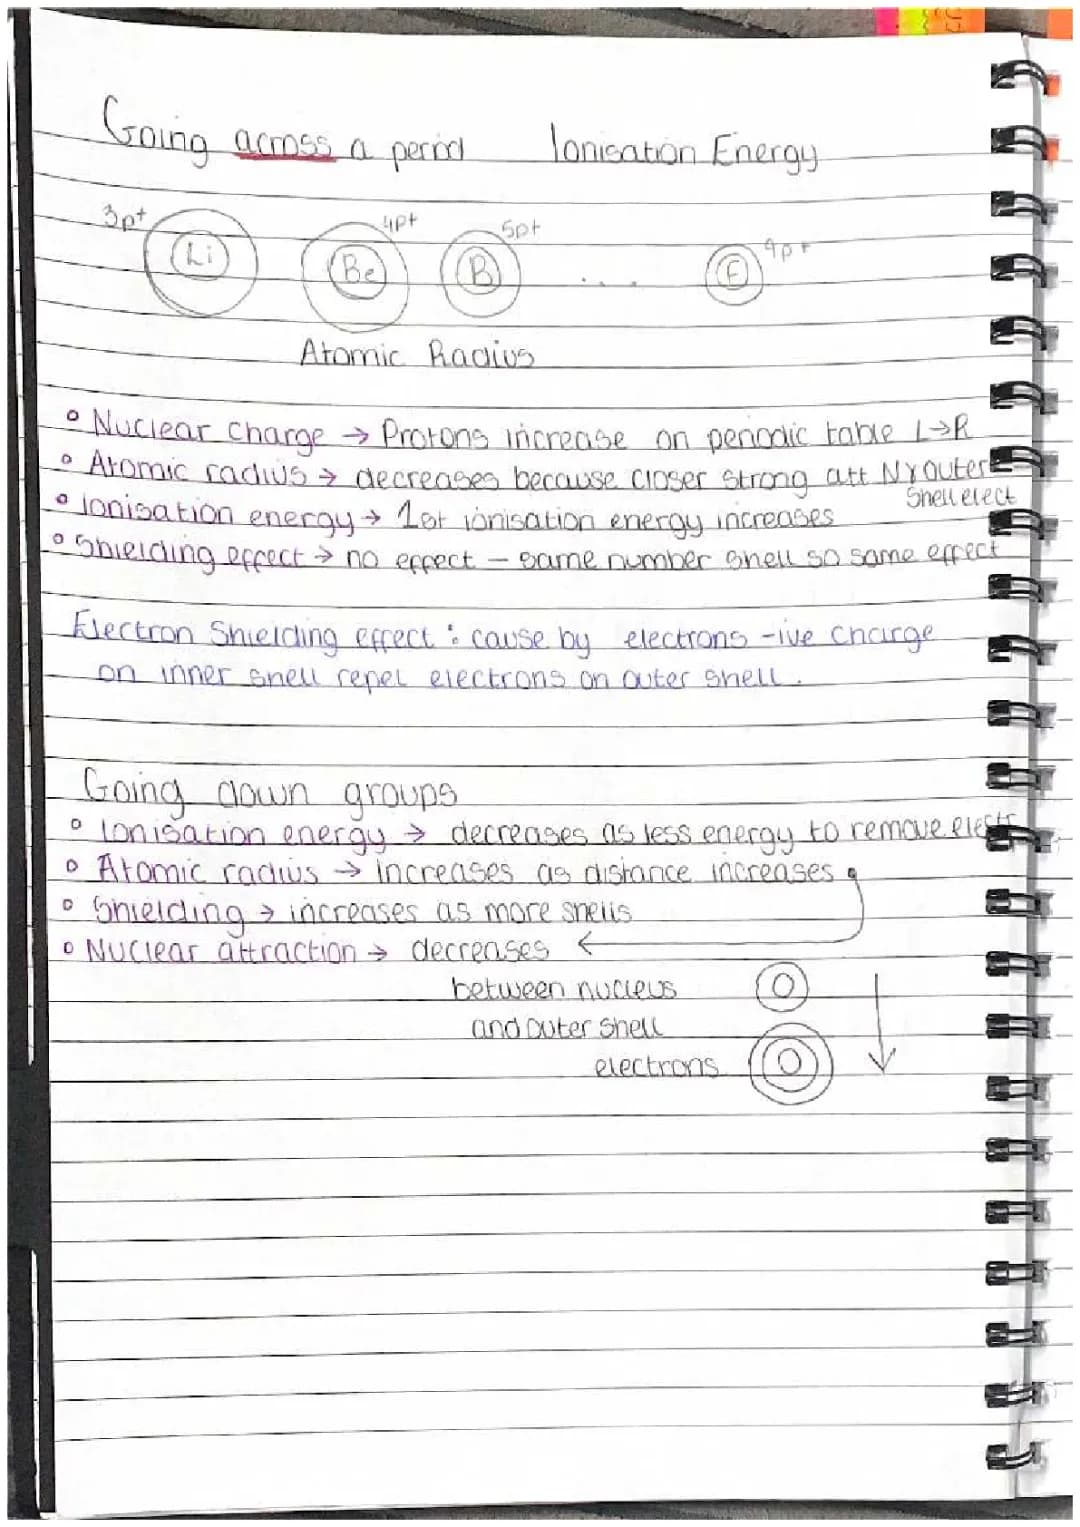 Going across a period Ionisation Energy
3p+ 4p+ 5p+ 9p+
Li Be B ... F
Atomic Radius
Nuclear charge → Protons increase on periodic table L→R
Atomic radius → decreases because closer strong att N+outer
Shell elect
Ionisation energy → 1st ionisation energy increases
Shielding effect → no effect - same number shell so same effect
Electron Shielding effect : cause by electrons -ive charge
on inner shell repel electrons on outer shell.
Going down groups
Ionisation energy → decreases as less energy to remove
Atomic radius → increases as distance increases
Shielding → increases as more shells
Nuclear attraction → decreases ←
between nucleus
and outer shell
electrons